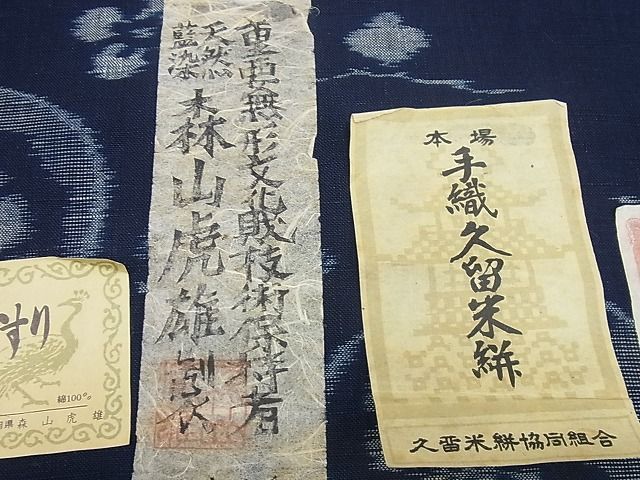 重要無形文化財技術保持者
天然
藍染
森山虎雄
本場
手織久留米絣
久留米絣協同組合
すり
綿100%
県森 山 虎 雄